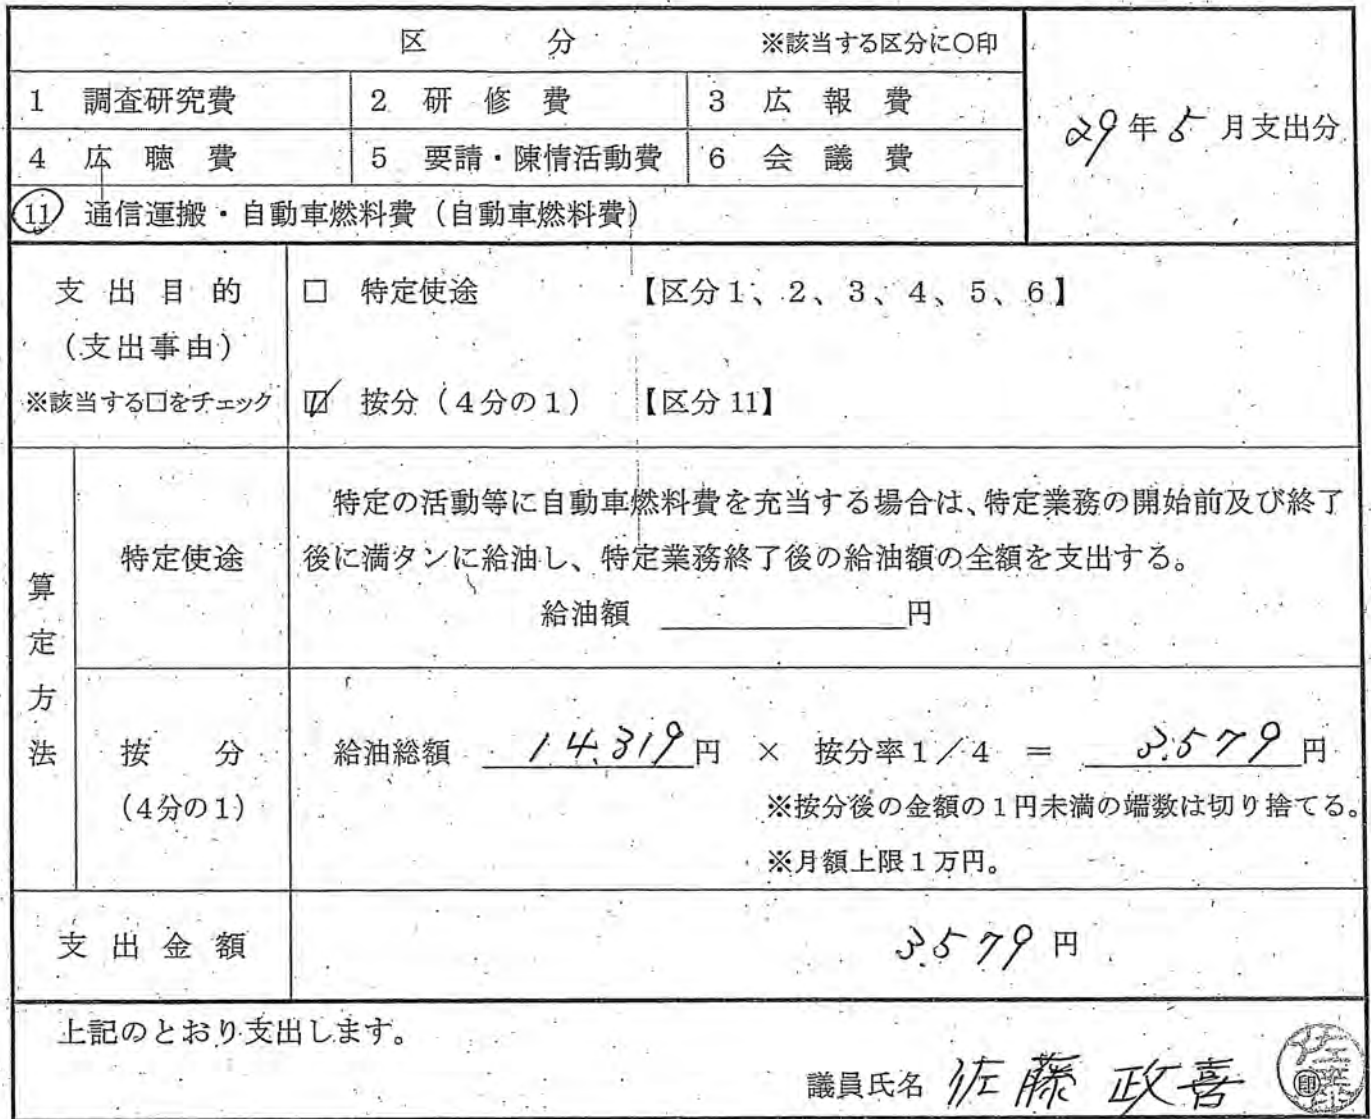 区 分 ※該当する区分に○印
1 調査研究費 2 研修費 3 広報費
29年5月支出分
4 広聴費 5 要請・陳情活動費 6 会議費
11 通信運搬・自動車燃料費(自動車燃料費)
支出目的 □ 特定使途 【区分1、2、3、4、5、6】
(支出事由)
※該当する□をチェック ☑ 按分(4分の1) 【区分11】
算定方法
特定の活動等に自動車燃料費を充当する場合は、特定業務の開始前及び終了
特定使途 後に満タンに給油し、特定業務終了後の給油額の全額を支出する。
給油額 円
按分 給油総額 14.319円 × 按分率1/4 = 3.579円
(4分の1) ※按分後の金額の1円未満の端数は切り捨てる。
※月額上限1万円。
支出金額 3.579円
上記のとおり支出します。
議員氏名 佐藤 政喜 ㊞